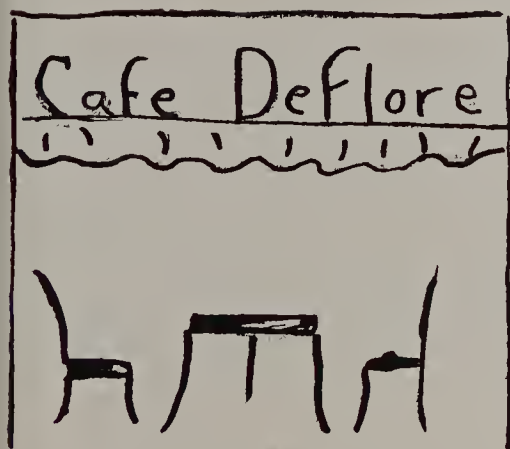 Cafe Deflore